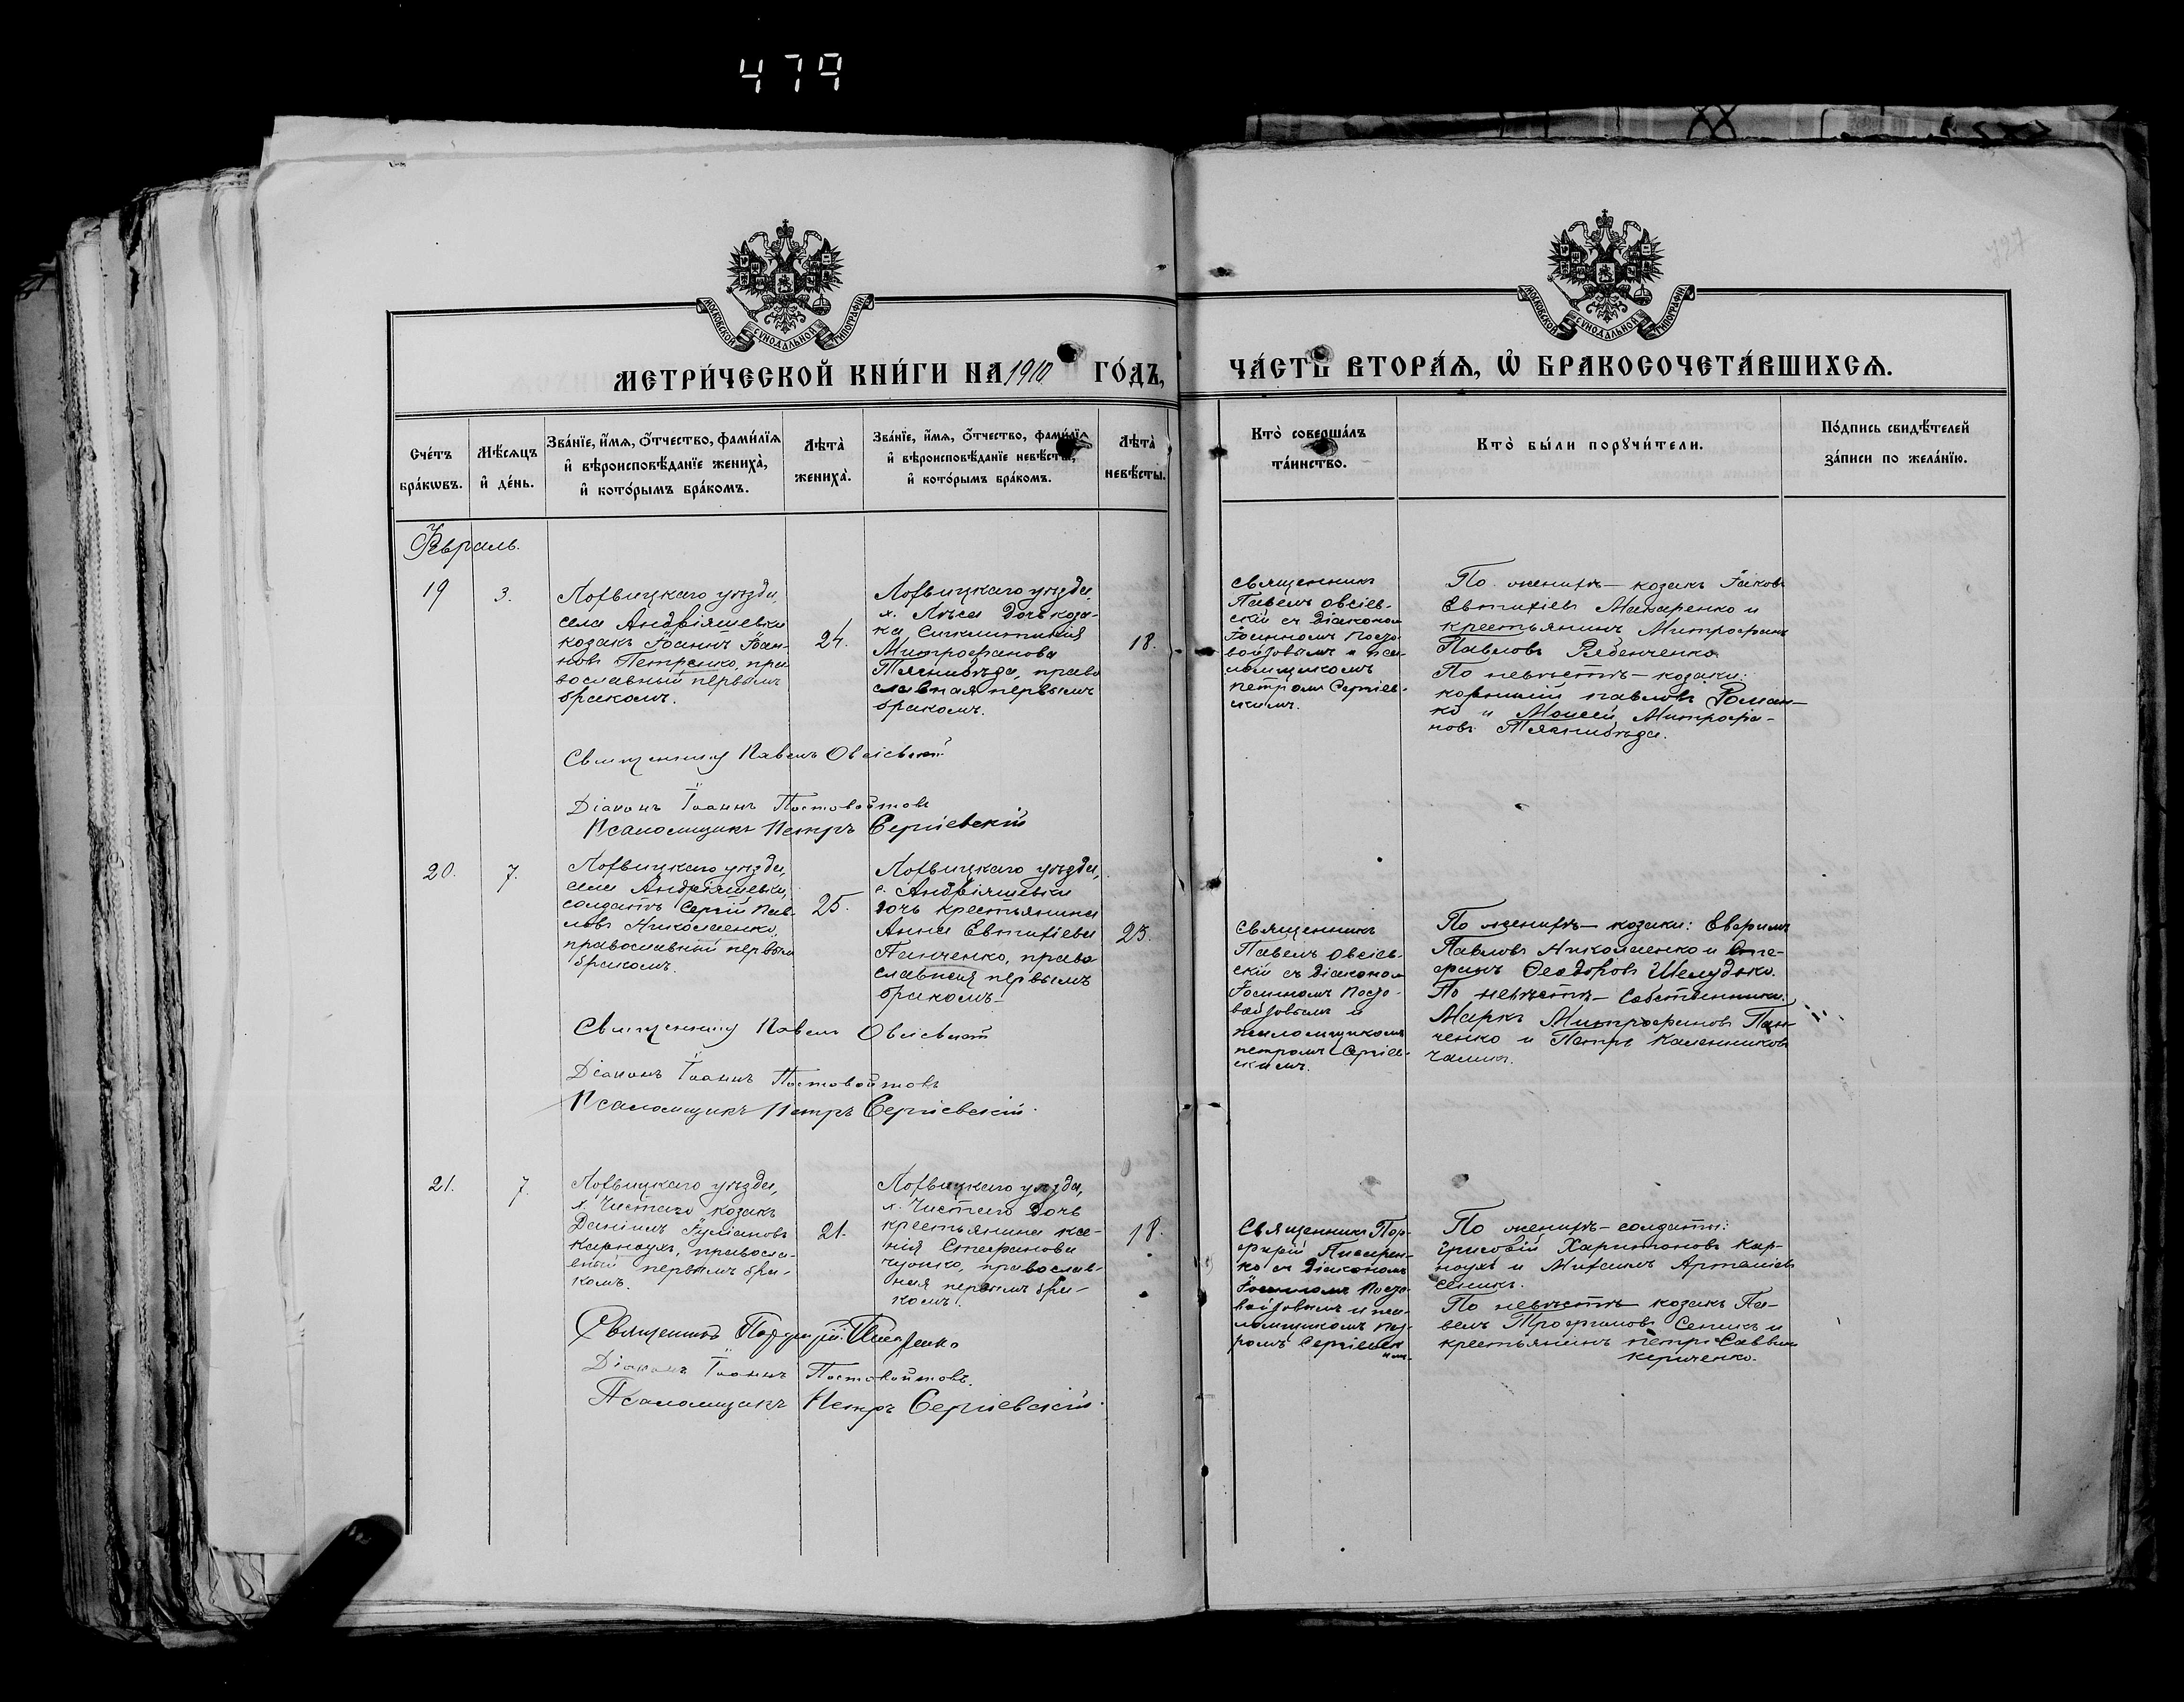 479
727
МОСКОВСКОЙ СѴНОДАЛЬНОЙ ТИПОГРАФІИ
МОСКОВСКОЙ СѴНОДАЛЬНОЙ ТИПОГРАФІИ
МЕТРИ́ЧЕСКОЙ КНИ́ГИ НА 1910 ГО́ДЪ,
ЧА́СТЬ ВТОРА́Ѧ, Ѡ҆ БРАКОСОЧЕТА́ВШИХСѦ.
Сче́тъ
бра́кѡвъ.
Мѣ́сѧцъ
и҆ де́нь.
Зва́нїе, и҆́мѧ, ѻ҆́тчество, фами́лїѧ
и҆ вѣроисповѣ́данїе жениха̀,
и҆ кото́рымъ бра́комъ.
Лѣта̀
жениха̀.
Зва́нїе, и҆́мѧ, ѻ҆́тчество, фами́лїѧ
и҆ вѣроисповѣ́данїе невѣ́сты,
и҆ кото́рымъ бра́комъ.
Лѣта̀
невѣ́сты.
Кто̀ соверша́лъ
та́инство.
Кто̀ бы́ли порꙋчи́тели.
По́дпись свидѣ́телей
за́писи по жела́нїю.
Февраль.
19
3.
Лохвицкаго уѣзда,
села Андріяшевки
козакъ Іоаннъ Іоан-
новъ Петренко, пра
вославный первымъ
бракомъ.
24.
Лохвицкаго уѣзда,
х. Лѣса дочь коза-
ка Сигклитикія
Митрофанова
Тягнибѣда, право
славная первымъ
бракомъ.
18.
Священникъ
Павелъ Овсіев-
скій съ діакономъ
Іоанномъ Посто
войтовымъ и пса-
ломщикомъ
Петромъ Сергіев-
скимъ.
По женихѣ — козакъ Іаковъ
Евтихіевъ Макаренко и
крестьянинъ Митрофанъ
Павловъ Рябенченко.
По невѣстѣ — козаки:
Корнилій Павловъ Роман-
ко и Моисей Митрофа-
новъ Тягнибѣда.
Священникъ Павелъ Овсіевскій
Діаконъ Іоаннъ Постовойтовъ
Псаломщикъ Петръ Сергіевскій
20.
7.
Лохвицкаго уѣзда,
села Андріяшевки,
солдатъ Сергій Пав-
ловъ Николаенко,
православный первымъ
бракомъ.
25.
Лохвицкаго уѣзда,
с. Андріяшевки
дочь крестьянина
Анна Евтихіева
Панченко, право
славная первымъ
бракомъ.
23.
Священникъ
Павелъ Овсіев-
скій съ діакономъ
Іоанномъ Посто-
войтовымъ и
псаломщикомъ
Петромъ Сергіев-
скимъ.
По женихѣ — козаки:
Павловъ Николаенко и Сте-
фанъ Феодоровъ Шелудько.
По невѣстѣ — собственники:
Маркъ Митрофановъ Пан-
ченко и Петръ Калинниковъ
Священникъ Павелъ Овсіевскій
Діаконъ Іоаннъ Постовойтовъ
Псаломщикъ Петръ Сергіевскій.
21.
7.
Лохвицкаго уѣзда,
х. Чистаго козакъ
Даніилъ Іуліановъ
Карнаухъ, правосла-
вный первымъ бра-
комъ.
21.
Лохвицкаго уѣзда,
х. Чистаго дочь
крестьянина Ксе-
нія Стефанова
православ-
ная первымъ бра-
комъ.
18.
Священникъ Пор-
фирій Писарен-
ко съ діакономъ
Іоанномъ Посто
войтовымъ и пса-
ломщикомъ Пет-
ромъ Сергіевск
имъ.
По женихѣ — солдаты:
Григорій Харитоновъ Кар-
наухъ и Михаилъ
Сеникъ.
По невѣстѣ козакъ Па-
велъ Трофимовъ Сеникъ и
крестьянинъ Петръ Саввинъ
Кириченко.
Священникъ Порфирій Писаренко
Діаконъ Іоаннъ Постовойтовъ.
Псаломщикъ Петръ Сергіевскій.